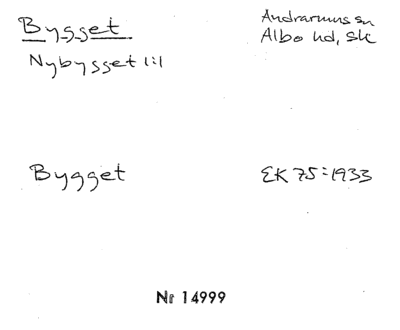 Bygget
Andrarums sn
Albo hd, Sk
Nybygget 1:1
Bygget
EK 75:1933
Nr 14999